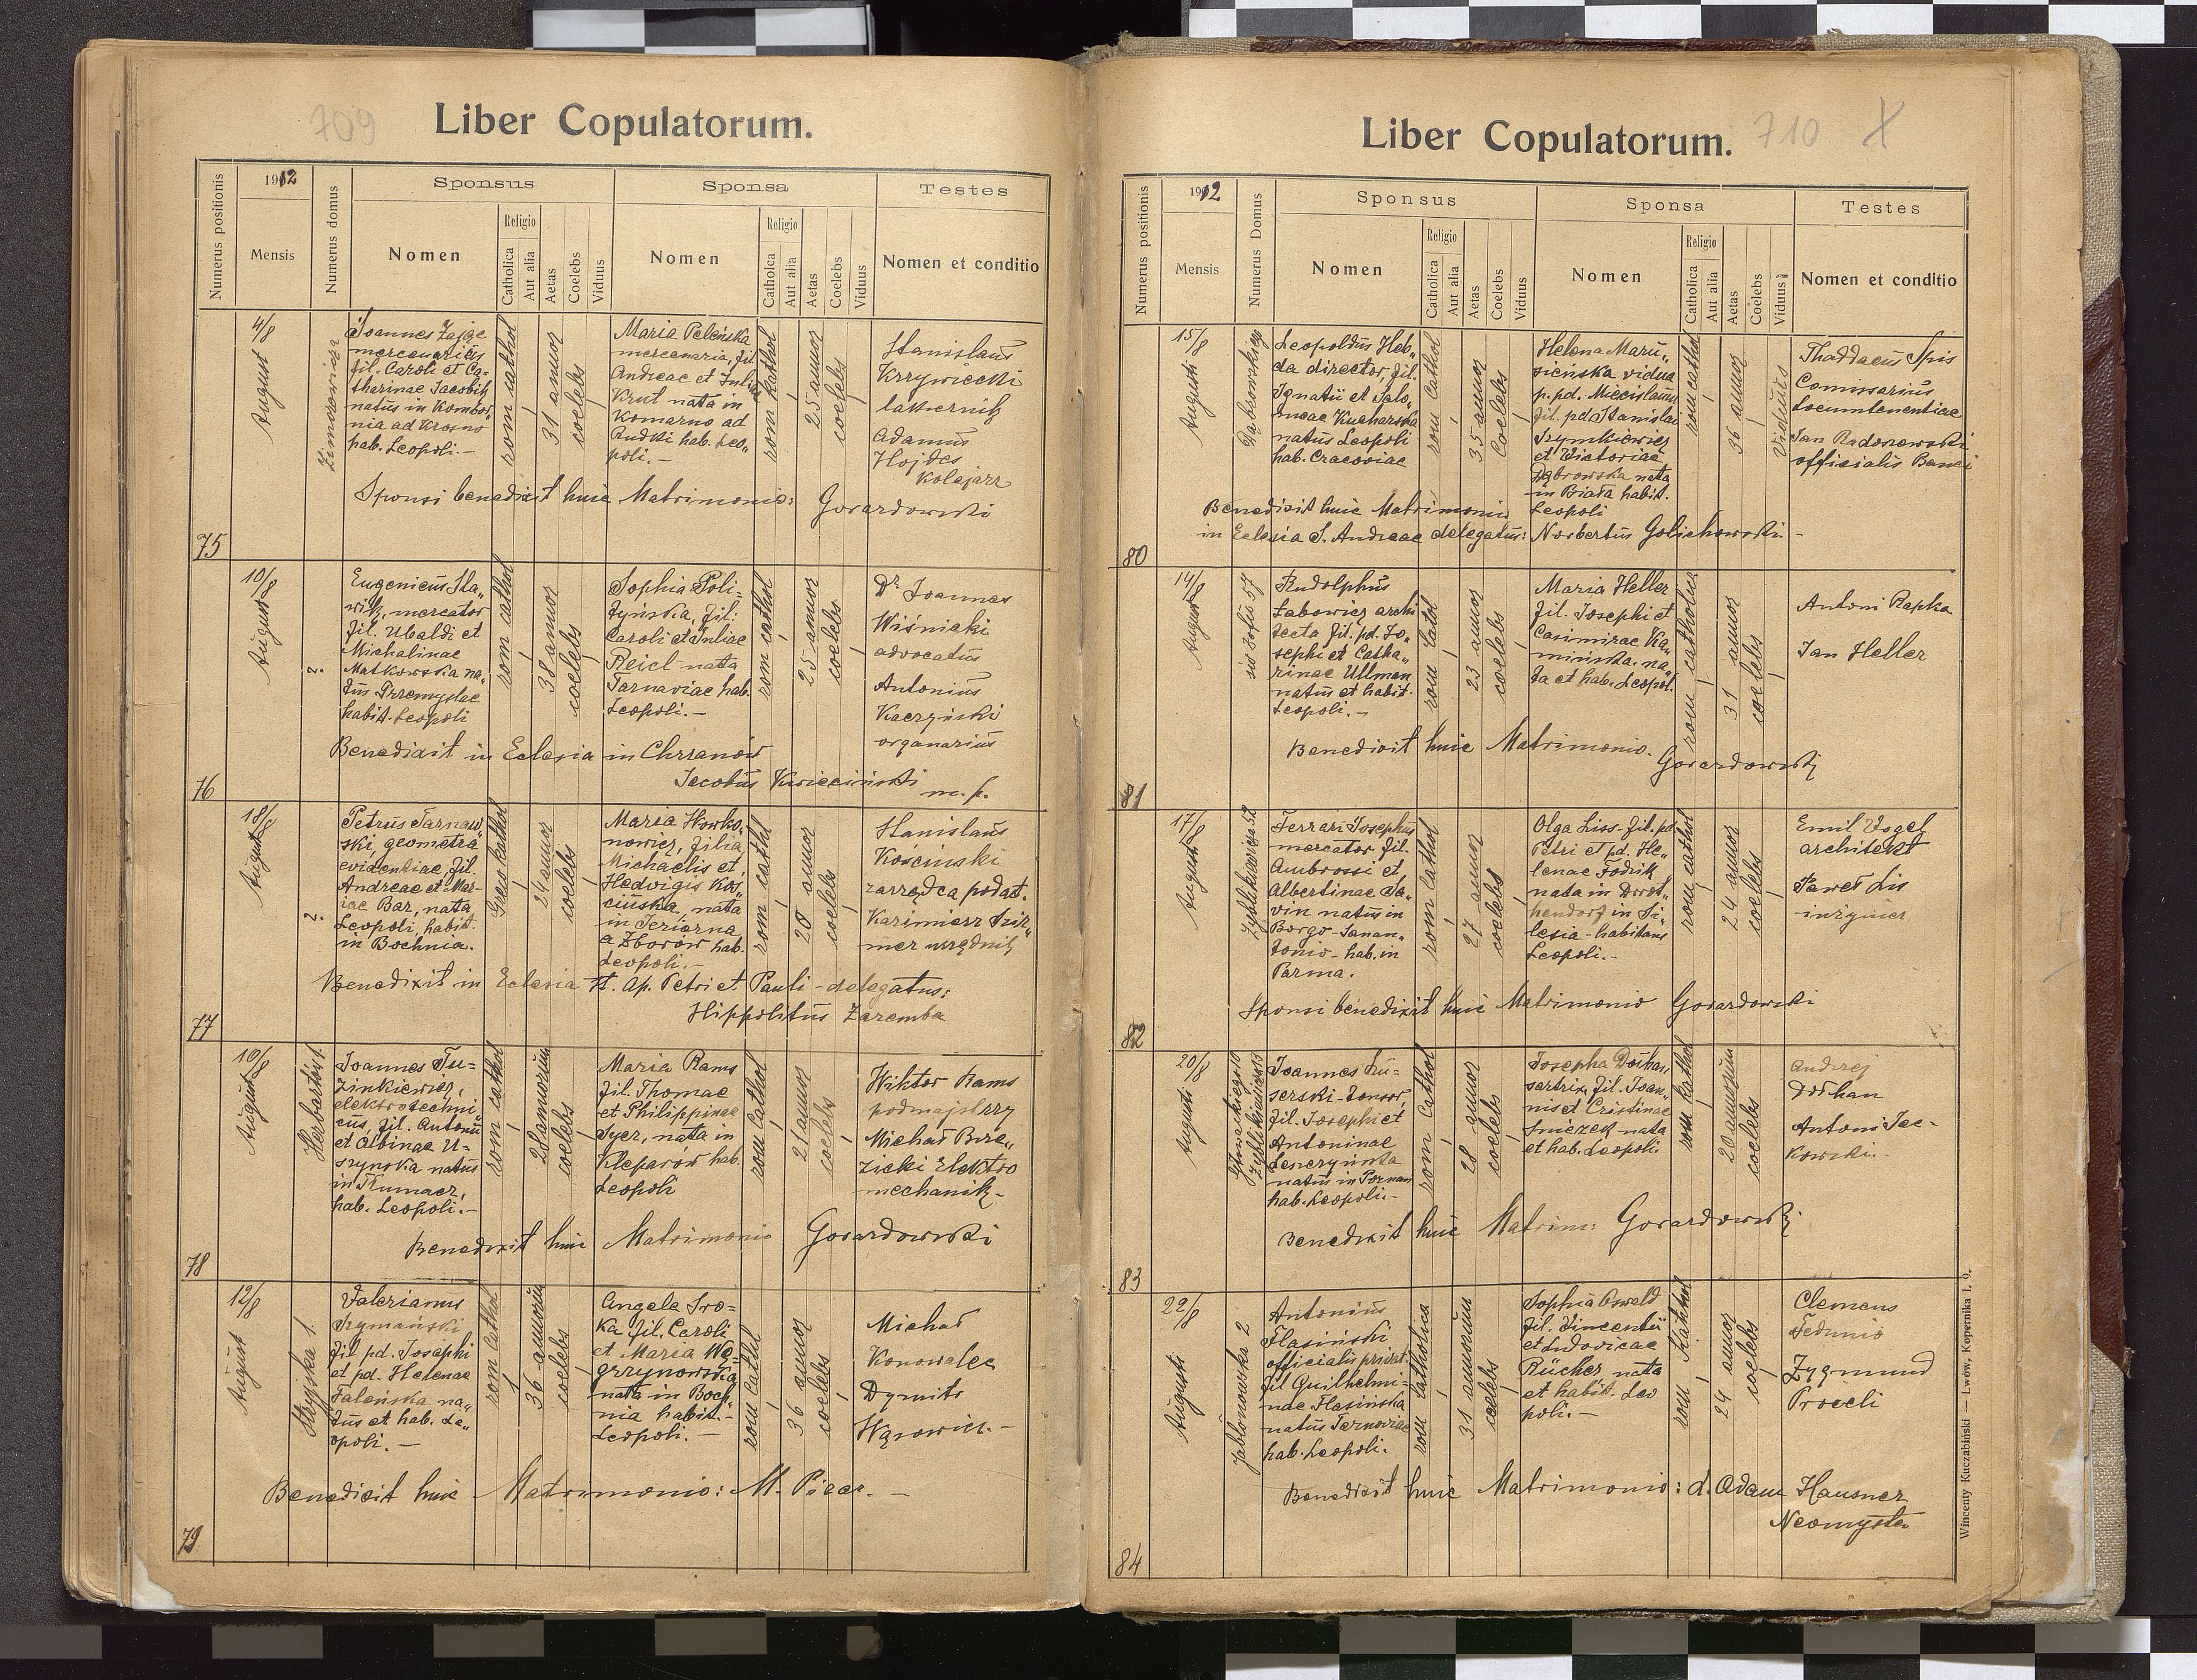 709
Liber Copulatorum.
Numerus positionis
1912
Mensis
Numerus domus
Sponsus
Nomen
Religio
Catholica
Aut alia
Aetas
Coelebs
Viduus
Sponsa
Nomen
Religio
Catholca
Aut alia
Aetas
Coelebs
Viduus
Testes
Nomen et conditio
75
4/8
August
Zimorowicza
Joannes Zając
mercenariŭs
fil. Caroli et Ca-
tharinae Jacobik
natŭs in Kombor„
nia ad Krosno
hab. Leopoli.-
rom cathol
31 annor
coelebs
Maria Peleńska
mercenaria, fil.
Andreae et Julia
Krut nata in
Komarno ad
Rudki hab. Leo„
poli.-
rom kathol
25 annor
coelebs
Stanislaŭs
Krzywiecki
lakiernik
Adamŭs
Hojdes
Kolejarz
Sponsi benedixit huic Matrimonio: Gorazdowski
76
10/8
August
?
Eugeniŭs Sla„
wik, mercator
fil. Ubaldi et
Michalinae
Matkowska na„
tŭs Przemyslae
habit. Leopoli
rom cathol
38 annor
coelebs
Sophia Poli=
tyńska, fil:
Caroli et Juliae
Reicl nata
Tarnaviae hab.
Leopoli.-
rom cathol
25 annor
coelebs
Dr Joannes
Wiśnicki
advocatŭs
Antoniŭs
Kaczyński
organariŭs
Benedixit in Eclesia in Chrzanów
Jacobŭs Kwieciński m.p.
77
18/8
August
?
Petrŭs Tarnaw„
ski, geometra
evidentiae, fil.
Andreae et Mar-
iae Bar, nata
Leopoli, habit.
in Bochnia.
Greco kathol
24 annor
coelebs
Maria Howko„
nowicz, filia
Michaelis et
Hedvigis Koś„
ciuska, nata
in Jeziorna
a Zborów hab.
Leopoli.-
rom cathol
20 annor
coelebs
Stanislaŭs
Kościnski
zarządca podat.
Kazimierz
urzędnik
Benedixit in Eclesia St. Ap. Petri et Pauli - delegatus:
Hippolitŭs Zaremba
78
10/8
August
Herbartów 1.
Joannes Tu=
zinkiewicz,
elektrotechni„
cŭs, fil. Antonii
et Albinae U-
szyńska natŭs
in Tłumacz,
hab. Leopoli.-
rom cathol
28 annorum
coelebs
Maria Rams
fil. Thomae
et Philippinae
Syer, nata in
Kleparów hab.
Leopoli
rom Cathol
21 annor
coelebs
Wiktor Rams
podmajstrzy
Michał Brze„
zicki Elektro
mechanik-
Benedixit huic Matrimonio Gorazdowski
79
12/8
August
Stryjska 1.
Valerianus
Szymański
fil pd. Josephi
et pd. Helenae
Faleńska na„
tŭs et hab. Le„
opoli.-
rom Cathol
36 annorŭm
coelebs
Angela Sro=
ka fil. Caroli
et Maria Wę=
grzynowska
nata in Boch„
nia habit.-
Leopoli.-
rom Cathol
36 annor
coelebs
Michał
Konowalec
Dymitr
Wąsowicz.-
Benedixit huic Matrimonio: M. Piecz.-
710 X
Liber Copulatorum.
Numerus positionis
1912
Mensis
Numerus Domus
Sponsus
Nomen
Religio
Catholica
Aut alia
Aetas
Coelebs
Viduus
Sponsa
Nomen
Religio
Catholica
Aut alia
Aetas
Coelebs
Viduus
Testes
Nomen et conditio
80
15/8
Augusti
Dąbrowskiego
Leopoldŭs Heb„
da director, fil.
Ignatii et Salo„
meae Kucharska
natŭs Leopoli
hab. Cracoviae
rom Cathol
35 annor
Coelebs
Helena Maru„
sieńska vidua
p. pd. Miecislaum
fil. pd. Stanislai
Szymkiewicz
et Victoriae
Dąbrowska nata
in Biała habit.
Leopoli
rom cathol
36 annor
Viduus
Thaddaeŭs Spis
Commsariŭs
Locumtenentiae
Jan Radoszewski
officialis Banci
Benedixit huic Matrimonio
in Eclesia S. Andreae delegatŭs: Norbertŭs Golichowski -
81
14/8
August
Św Zofii 57
Rudolphŭs
Labowicz archi
tecta fil. pd. Jo„
sephi et Catha„
rinae Ullman
natŭs et habit.
Leopoli.-
rom Cathol
23 annor
coelebs
Maria Heller
fil. Josephi et
Casimirae Ka„
mińska. na„
ta et hab. Leopol.
rom catholica
31 annor
coelebs
Antoni Rapka
Jan Heller
Benedixit huic Matrimonio. Gorazdowski
82
17/8
August
Zyblikiewicza 52
Ferrari Josephŭs
mercator fil.
Ambrossi et
Albertinae Sa„
vin natŭs in
Borgo-Sanan„
tonio- hab. in
Parma.
rom Cathol
27 annor
coelebs
Olga Liss-fil. pd.
Petri et pd. He„
lenae Fodrik
nata in
in Si„
lesia - habitans
Leopoli.-
rom cathol
24 annor
coelebs
Emil Vogel
architekt
Paweł Lis
inżynier
Sponsi benedixit huic Matrimonio Gorazdowski
83
20/8
Augusti
Głowackiego 10
Zyblikiewicza
Joannes Ku=
serski-tonsor,
fil. Josephi et
Antoninae
Lenczyńska
natŭs in Poznań
hab. Leopoli.-
rom Cathol
28 annor
coelebs
Josepha Dorhan,
sartrix, fil. Joan„
nis et Cristinae
Śnieżek nata
et hab. Leopoli
rom kathol
20 annorum
coelebs
Andrzej
Dorhan
Antoni Jac-
kowski.-
Benedixit huic Matrim: Gorazdowski
84
22/8
Augusti
Jabłonowska 2
Antoniŭs
Flasiński
officialis privat.
fil Guilhelmi=
nae Flasińska
natŭs Tarnoviae
hab. Leopoli.
rom catholica
31 annorŭm
coelebs
Sophia Oswald
fil. Vincentii
et Ludovicae
Rücher nata
et habit. Leo
poli.-
rom Kathol
24 annor
coelebs
Clemens
Fedunio
Zygmund
Proceli
Benedixit huic Matrimonio: d. Adam Hausner
Neomysta
Wincenty Kuczabiński — Lwów, Kopernika l. 9.